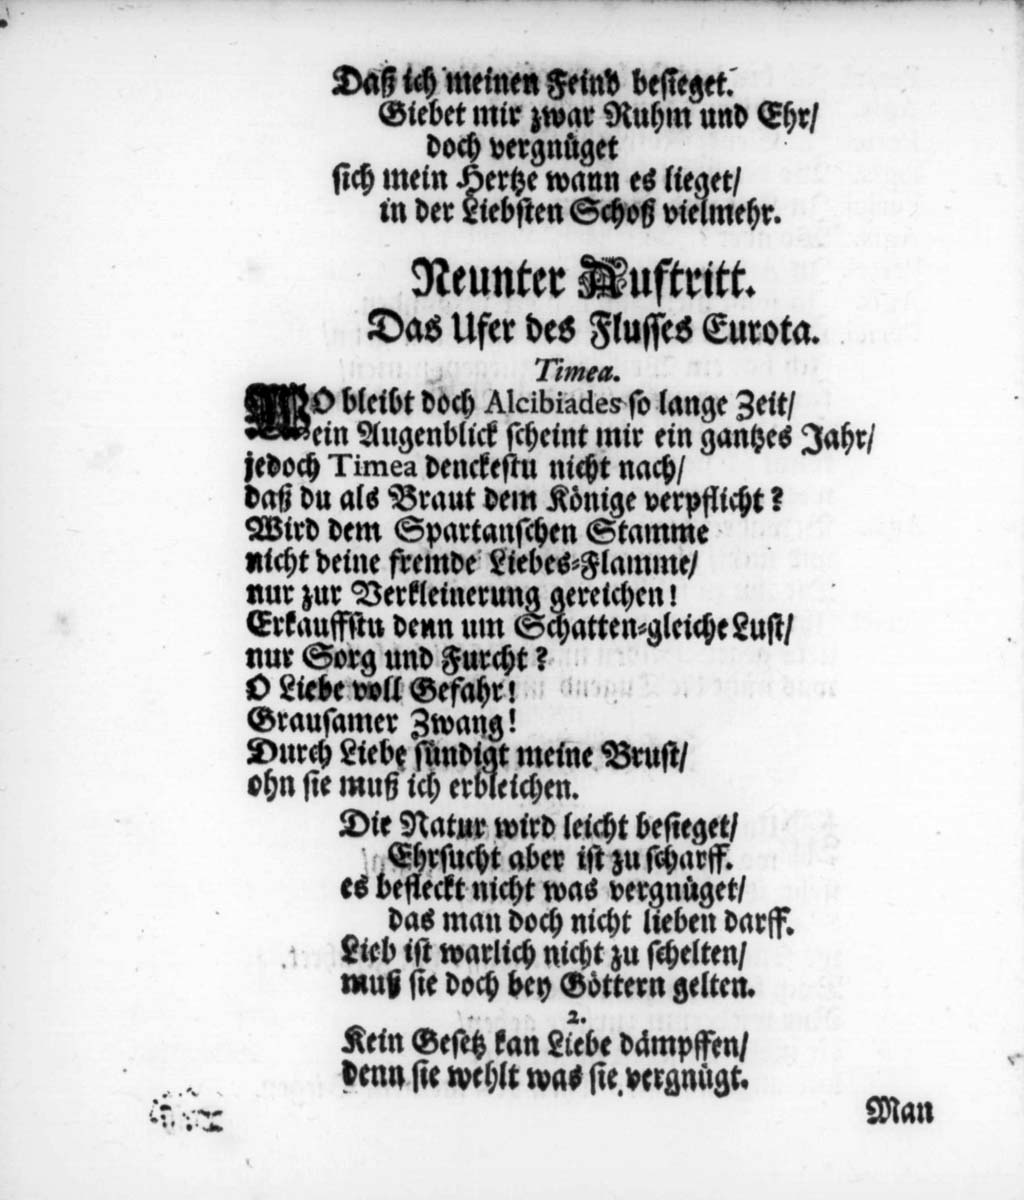 Daß ich meinen Feind besieget.
Giebet mir zwar Ruhm und Ehr/
doch vergnüget
sich mein Hertze wann es lieget/
in der Liebsten Schoß vielmehr.
Neunter Auftritt.
Das Ufer des Flusses Eurota.
Timea.
WO bleibt doch Alcibiades so lange Zeit/
ein Augenblick scheint mir ein gantzes Jahr/
jedoch Timea denckestu nicht nach/
daß du als Braut dem Könige verpflicht?
Wird dem Spartanschen Stamme
nicht deine fremde Liebes-Flamme/
nur zur Verkleinerung gereichen!
Erkauffstu denn um Schatten-gleiche Lust/
nur Sorg und Furcht?
O Liebe voll Gefahr!
Grausamer Zwang!
Durch Liebe sündigt meine Brust/
ohn sie muß ich erbleichen.
Die Natur wird leicht besieget/
Ehrsucht aber ist zu scharff.
es befleckt nicht was vergnüget/
das man doch nicht lieben darff.
Lieb ist warlich nicht zu schelten/
muß sie doch bey Göttern gelten.
2.
Kein Gesetz kan Liebe dämpffen/
denn sie wehlt was sie vergnügt.
Man